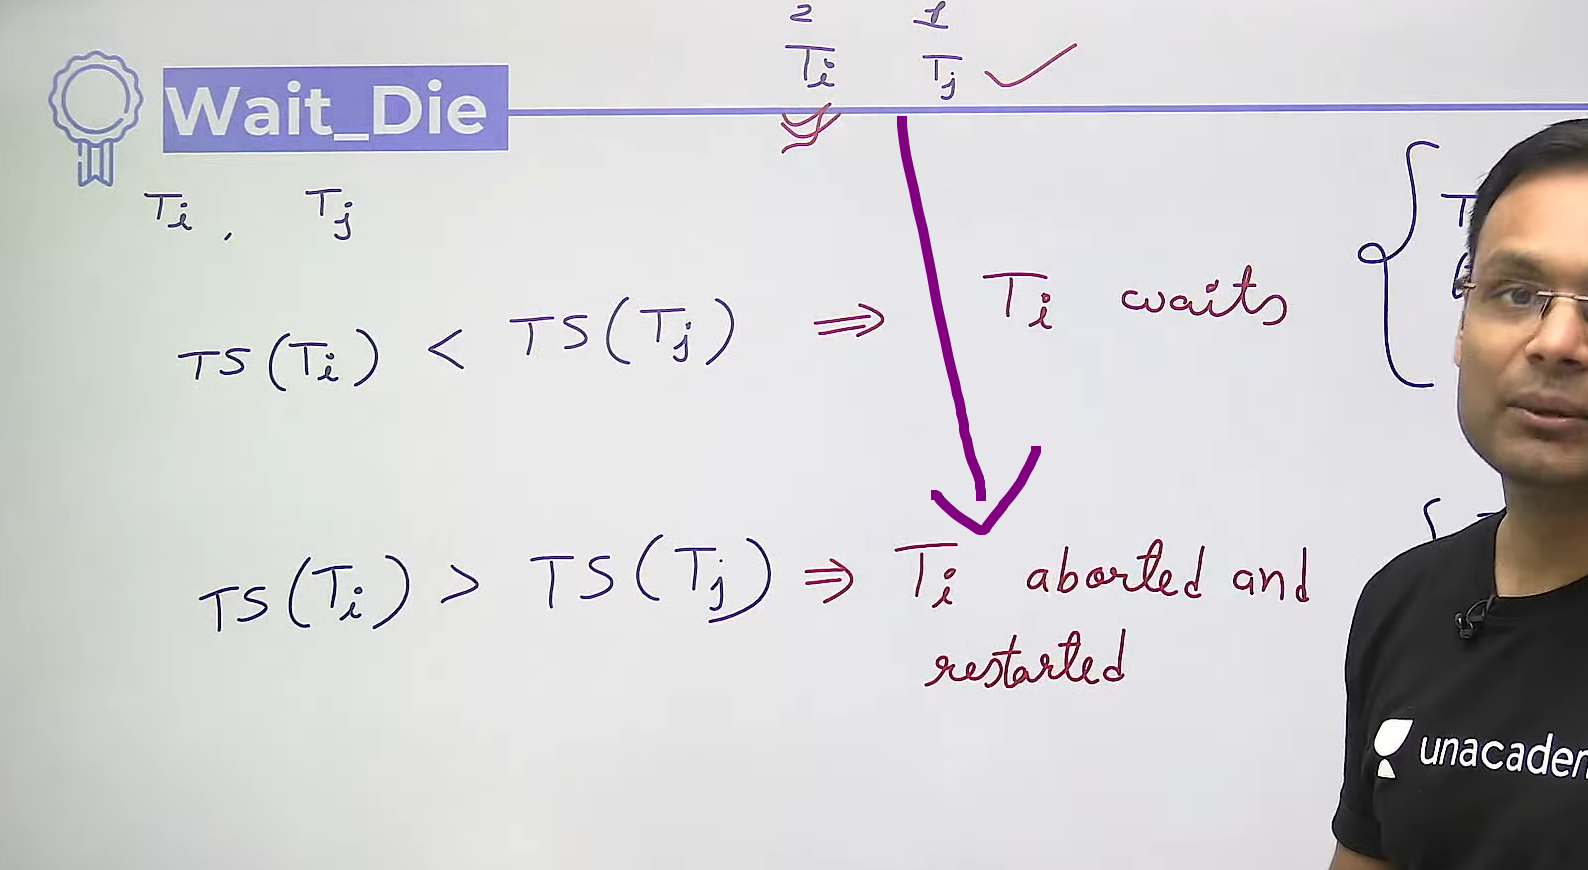 2 1
Ti Tj
Wait_Die
Ti , Tj
TS(Ti) < TS(Tj) ⇒ Ti waits
TS(Ti) > TS(Tj) ⇒ Ti aborted and
restarted
unacadem